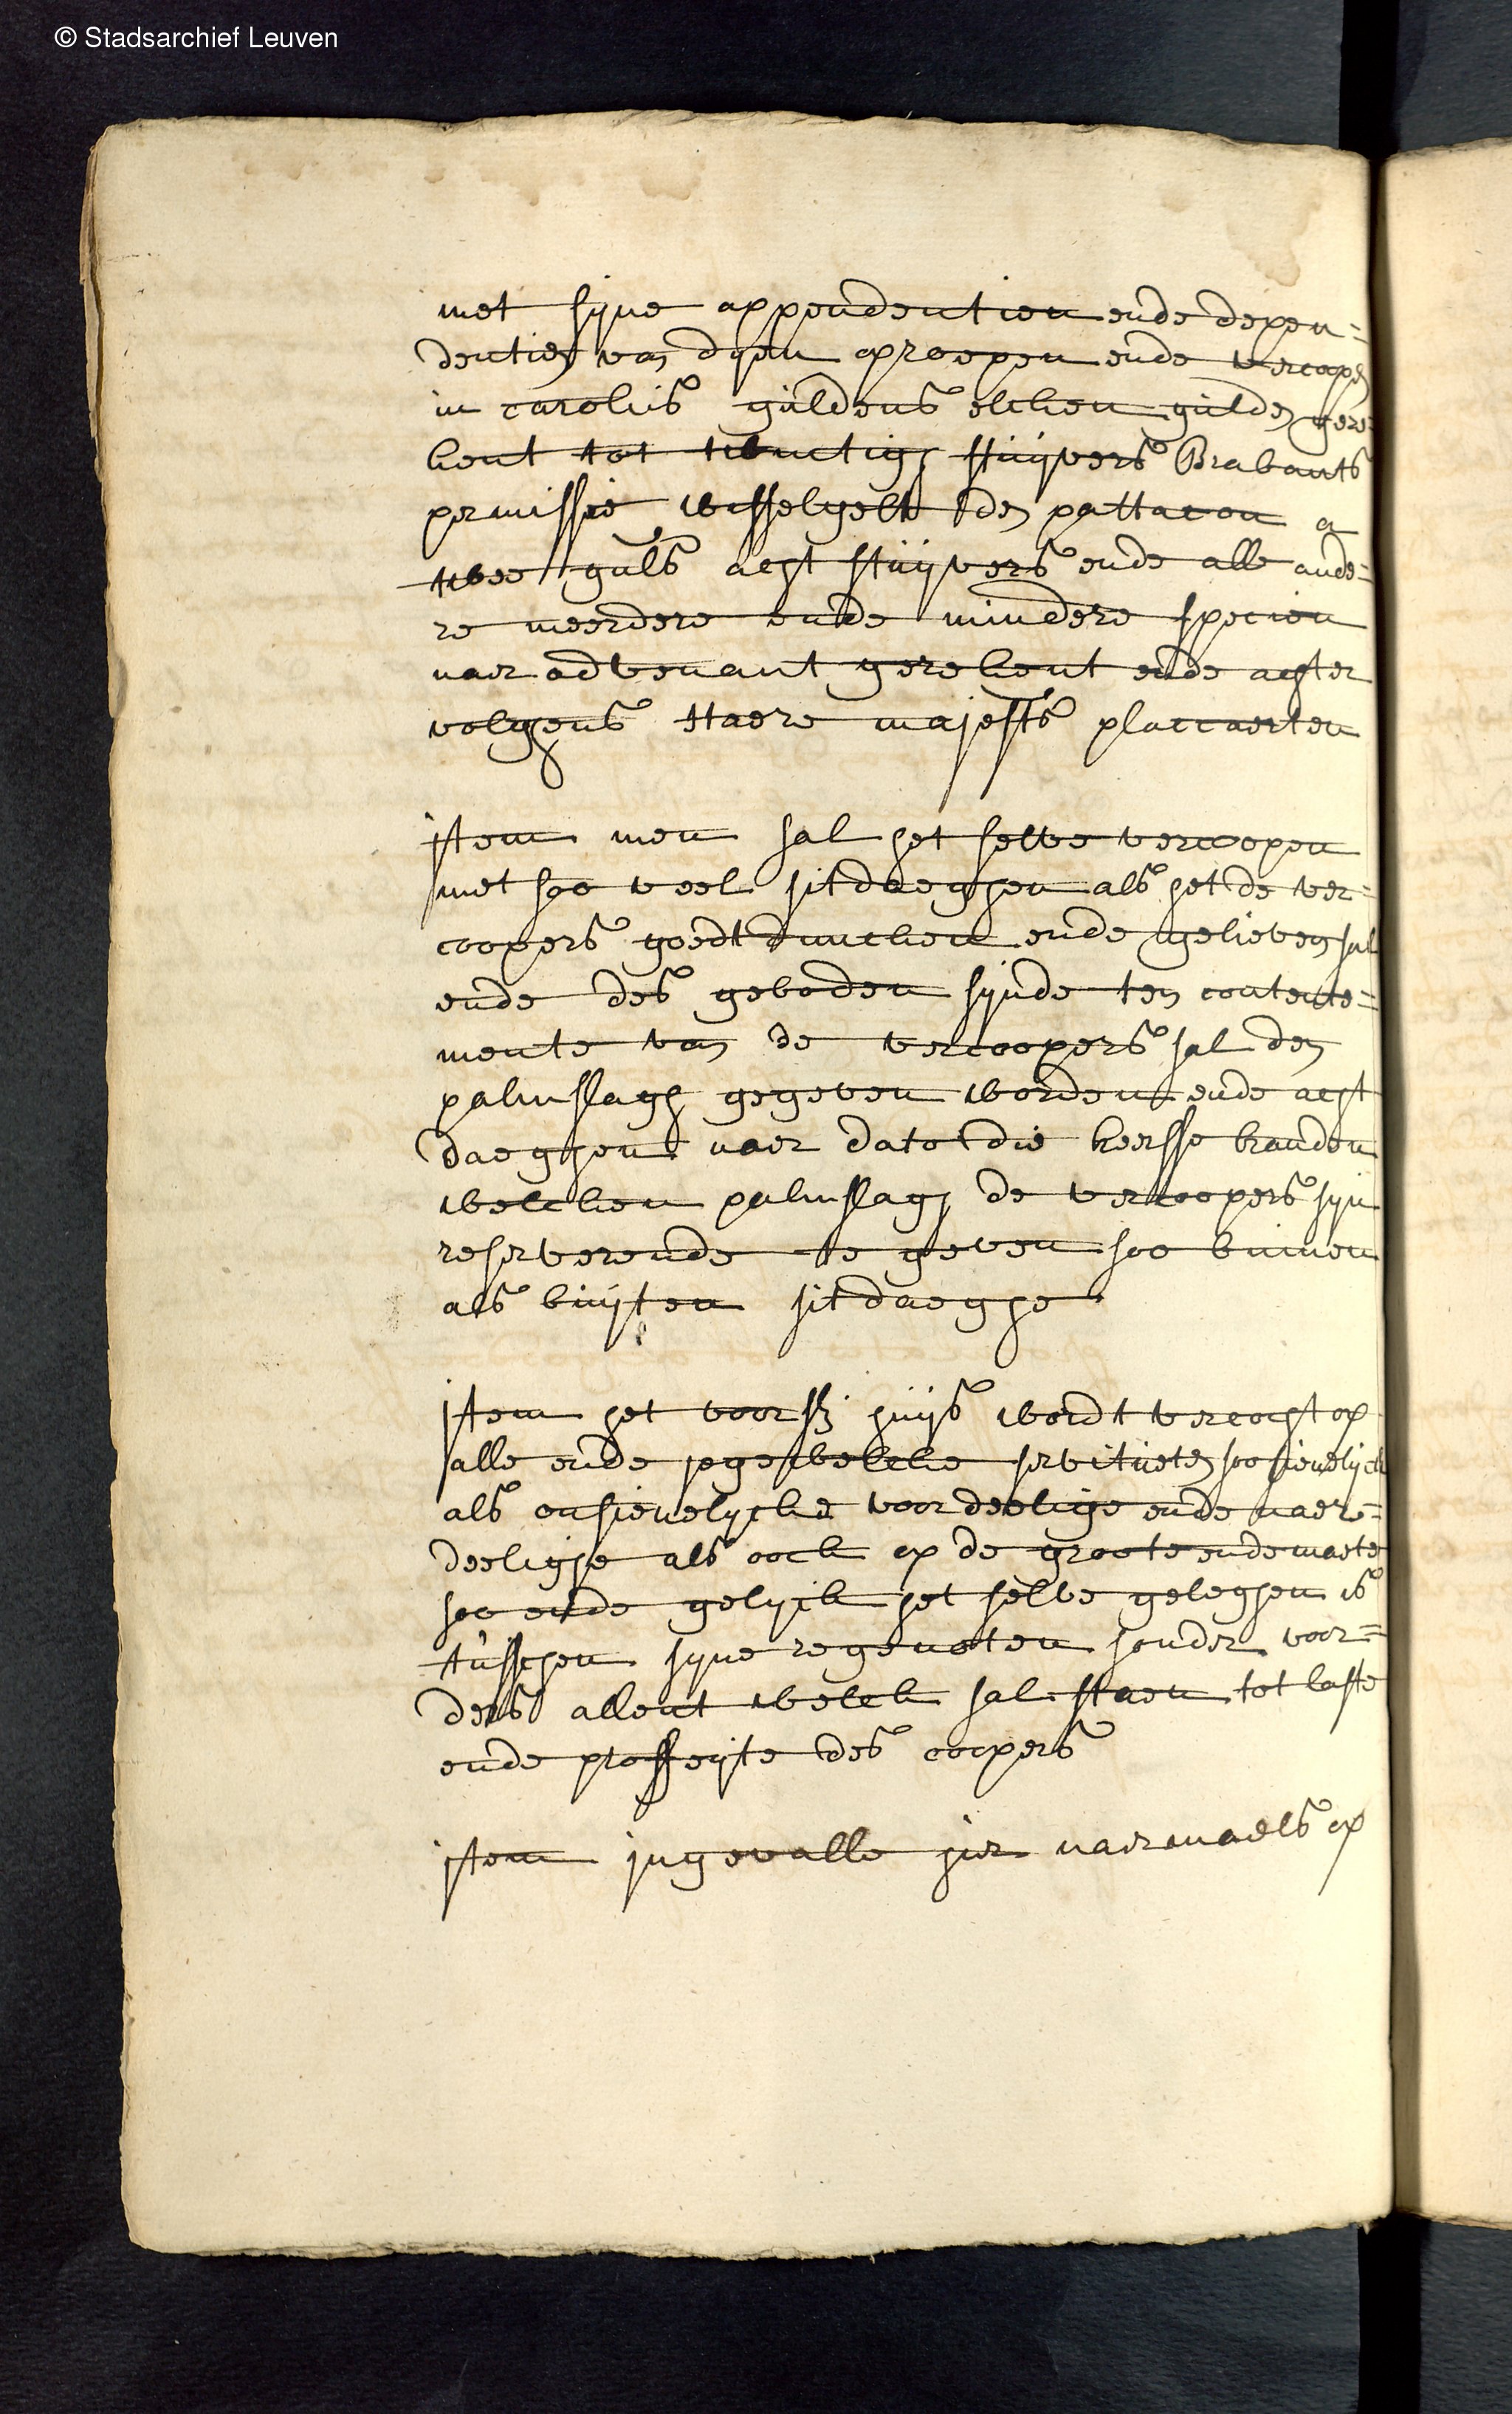 © Stadsarchief Leuven
met syne appendentien ende depen=
dentien van dyen oproepen ende vercoopen
in carolus guldens elcken gulden gere
kent tot twintigh stuyvers Brabants
permissie wisselgelt den pattacon a
twee guls acht stuyvers ende alle ande=
re meerdere ende mindere specien
naer advenant gerekent ende achter
volghens Haere majesteyts placcaerten
jtem men sal het selve vercoopen
met soo veel sitdaeghen als het de ver=
coopers goedt duncken ende gelieven sal
ende des geboden synde ten contente=
mente van de vercoopers sal den
palmslagh gegeven worden ende acht
daeghen naer dato die keersse branden
welcken palmslagh de vercoopers syn
reserverende te geven soo binnen
als buyten sitdaeghe
jtem het voors. huys wordt vercocht op
alle ende jegewelcke servitueten soo sienelyck
als onsienelycke voordeelige ende naer=
deelighe als oock op de groote ende maete
soo ende gelyck het selve geleghen is
tusschen syne regenoten sonder voor=
ders allent welck sal staen tot laste
ende proffeyte des coopers
jtem jngevalle hier naermaels op